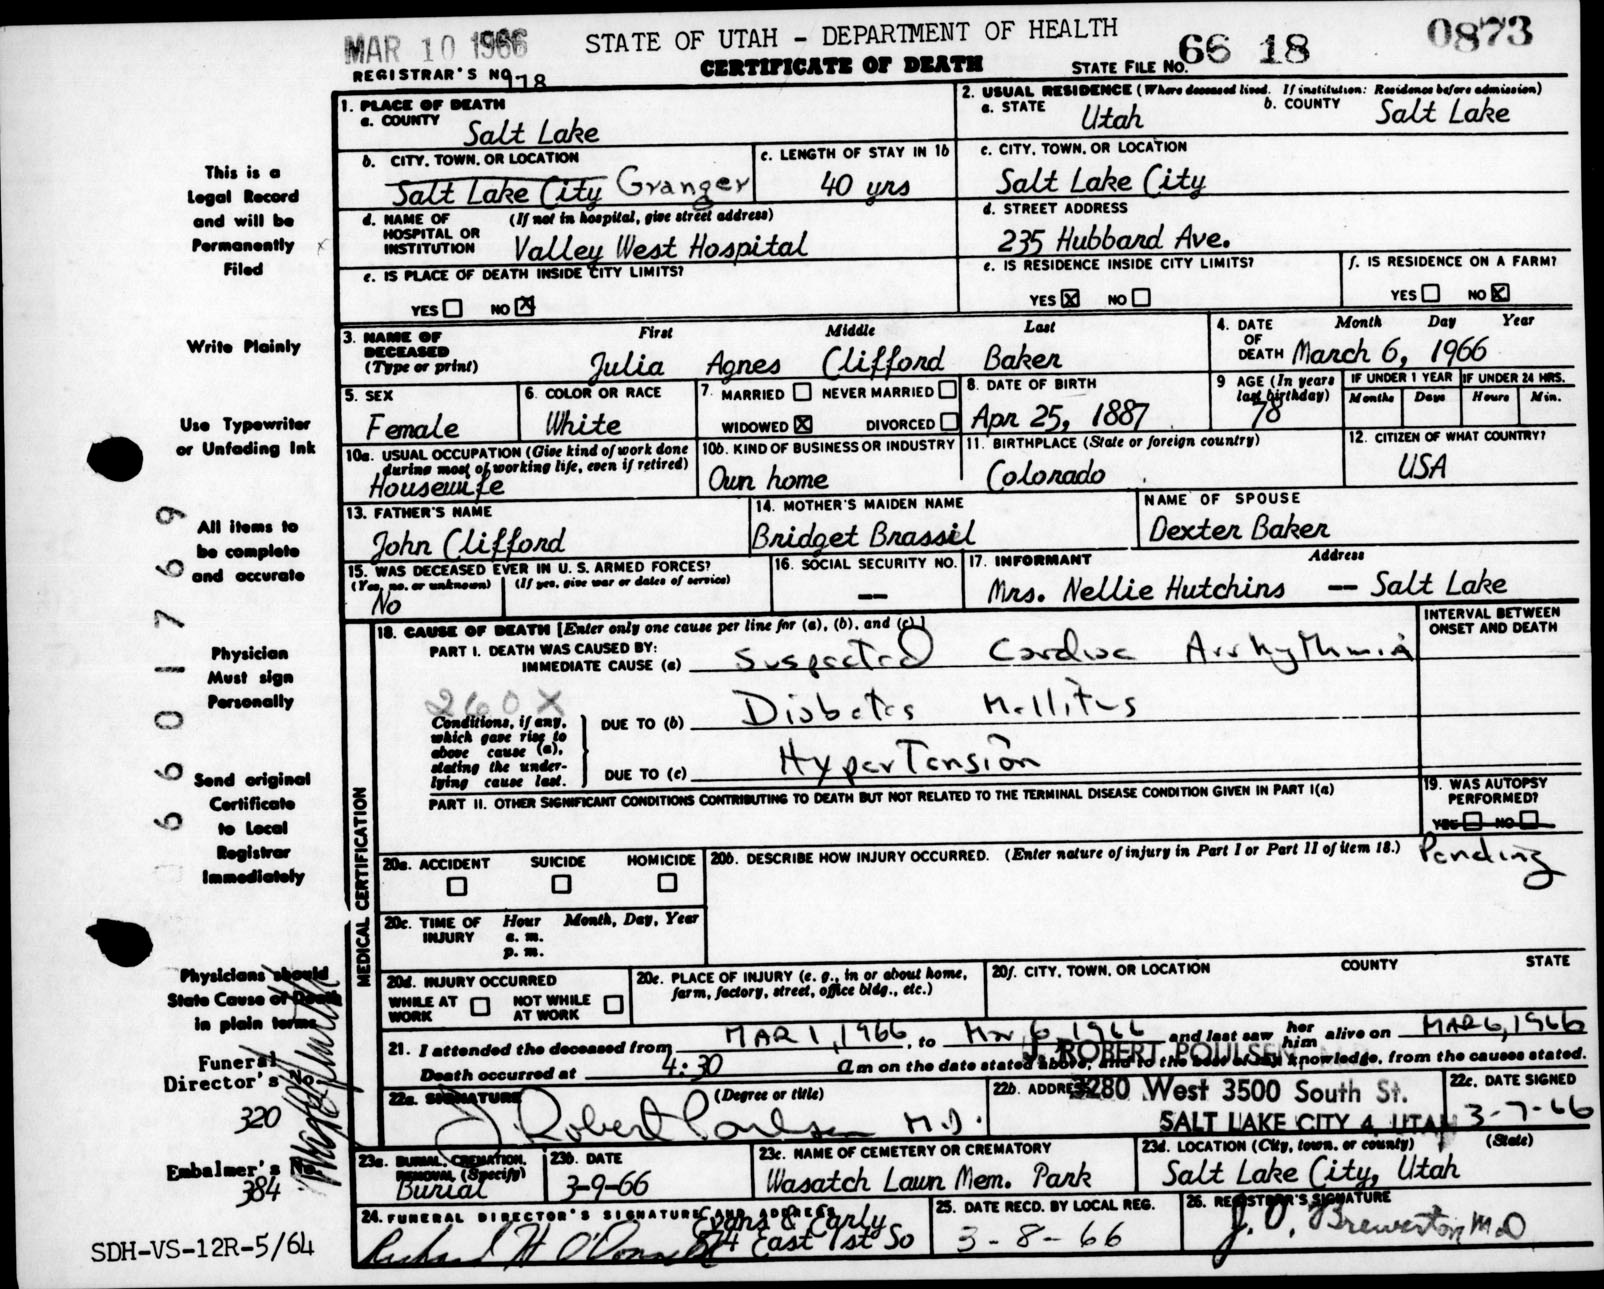 MAR 10 1966
STATE OF UTAH - DEPARTMENT OF HEALTH
CERTIFICATE OF DEATH
REGISTRAR'S NO. 978
STATE FILE NO. 66 18 0873
1. PLACE OF DEATH
a. COUNTY Salt Lake
b. CITY, TOWN, OR LOCATION
Salt Lake City Granger
c. LENGTH OF STAY IN 1b
40 yrs
d. NAME OF HOSPITAL OR INSTITUTION (If not in hospital, give street address)
Valley West Hospital
e. IS PLACE OF DEATH INSIDE CITY LIMITS?
YES NO X
2. USUAL RESIDENCE (Where deceased lived. If institution: Residence before admission)
a. STATE Utah
b. COUNTY Salt Lake
c. CITY, TOWN, OR LOCATION
Salt Lake City
d. STREET ADDRESS
235 Hubbard Ave.
e. IS RESIDENCE INSIDE CITY LIMITS?
YES X NO
f. IS RESIDENCE ON A FARM?
YES NO X
3. NAME OF DECEASED (Type or print)
First Middle Last
Julia Agnes Clifford Baker
4. DATE OF DEATH Month Day Year
March 6, 1966
5. SEX
Female
6. COLOR OR RACE
White
7. MARRIED NEVER MARRIED
WIDOWED X DIVORCED
8. DATE OF BIRTH
Apr 25, 1887
9 AGE (In years last birthday)
78
IF UNDER 1 YEAR
Months Days
IF UNDER 24 HRS.
Hours Min.
10a. USUAL OCCUPATION (Give kind of work done during most of working life, even if retired)
Housewife
10b. KIND OF BUSINESS OR INDUSTRY
Own home
11. BIRTHPLACE (State or foreign country)
Colorado
12. CITIZEN OF WHAT COUNTRY?
USA
13. FATHER'S NAME
John Clifford
14. MOTHER'S MAIDEN NAME
Bridget Brassil
NAME OF SPOUSE
Dexter Baker
15. WAS DECEASED EVER IN U. S. ARMED FORCES?
(Yes, no, or unknown) (If yes, give war or dates of service)
No
16. SOCIAL SECURITY NO.
--
17. INFORMANT Address
Mrs. Nellie Hutchins -- Salt Lake
MEDICAL CERTIFICATION
18. CAUSE OF DEATH [Enter only one cause per line for (a), (b), and (c).]
INTERVAL BETWEEN ONSET AND DEATH
PART I. DEATH WAS CAUSED BY:
IMMEDIATE CAUSE (a) Suspected Cardiac Arrhythmia
260X
Conditions, if any, which gave rise to above cause (a), stating the underlying cause last.
DUE TO (b) Diabetes Mellitus
DUE TO (c) Hypertension
PART II. OTHER SIGNIFICANT CONDITIONS CONTRIBUTING TO DEATH BUT NOT RELATED TO THE TERMINAL DISEASE CONDITION GIVEN IN PART I(a)
19. WAS AUTOPSY PERFORMED?
YES NO
Pending
20a. ACCIDENT SUICIDE HOMICIDE
20b. DESCRIBE HOW INJURY OCCURRED. (Enter nature of injury in Part I or Part II of item 18.)
20c. TIME OF INJURY Hour Month, Day, Year
a. m.
p. m.
20d. INJURY OCCURRED
WHILE AT WORK NOT WHILE AT WORK
20e. PLACE OF INJURY (e. g., in or about home, farm, factory, street, office bldg., etc.)
20f. CITY, TOWN, OR LOCATION COUNTY STATE
21. I attended the deceased from MAR 1, 1966, to Mar 6, 1966 and last saw her him alive on MAR 6, 1966
Death occurred at 4:30 am on the date stated above, and to the best of my knowledge, from the causes stated.
22a. SIGNATURE (Degree or title)
J. Robert Poulsen M.D.
22b. ADDRESS
J. ROBERT POULSEN
3280 West 3500 South St.
SALT LAKE CITY 4, UTAH
22c. DATE SIGNED
3-7-66
23a. BURIAL, CREMATION, REMOVAL (Specify)
Burial
23b. DATE
3-9-66
23c. NAME OF CEMETERY OR CREMATORY
Wasatch Lawn Mem. Park
23d. LOCATION (City, town, or county) (State)
Salt Lake City, Utah
24. FUNERAL DIRECTOR'S SIGNATURE AND ADDRESS
Evans & Early
Richard H O'Donnell 574 East 1st So
25. DATE RECD. BY LOCAL REG.
3-8-66
26. REGISTRAR'S SIGNATURE
J. O. Brewerton MD
This is a
Legal Record
and will be
Permanently
Filed
Write Plainly
Use Typewriter
or Unfading Ink
All items to
be complete
and accurate
Physician
Must sign
Personally
Send original
Certificate
to Local
Registrar
Immediately
Physicians should
State Cause of Death
in plain terms
Funeral
Director's No.
320
Embalmer's No.
384
6 6 0 1 7 6 9
SDH-VS-12R-5/64